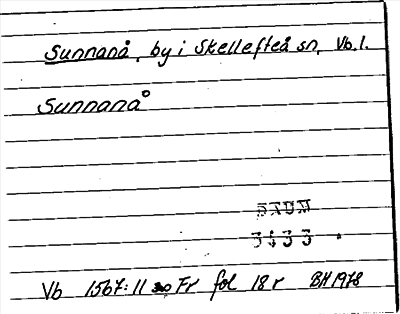 Sunnanå, by i Skellefteå sn, Vb.l.
Sunnanå
3433
Vb 1567:11 Fr fol 18 r BH 1978